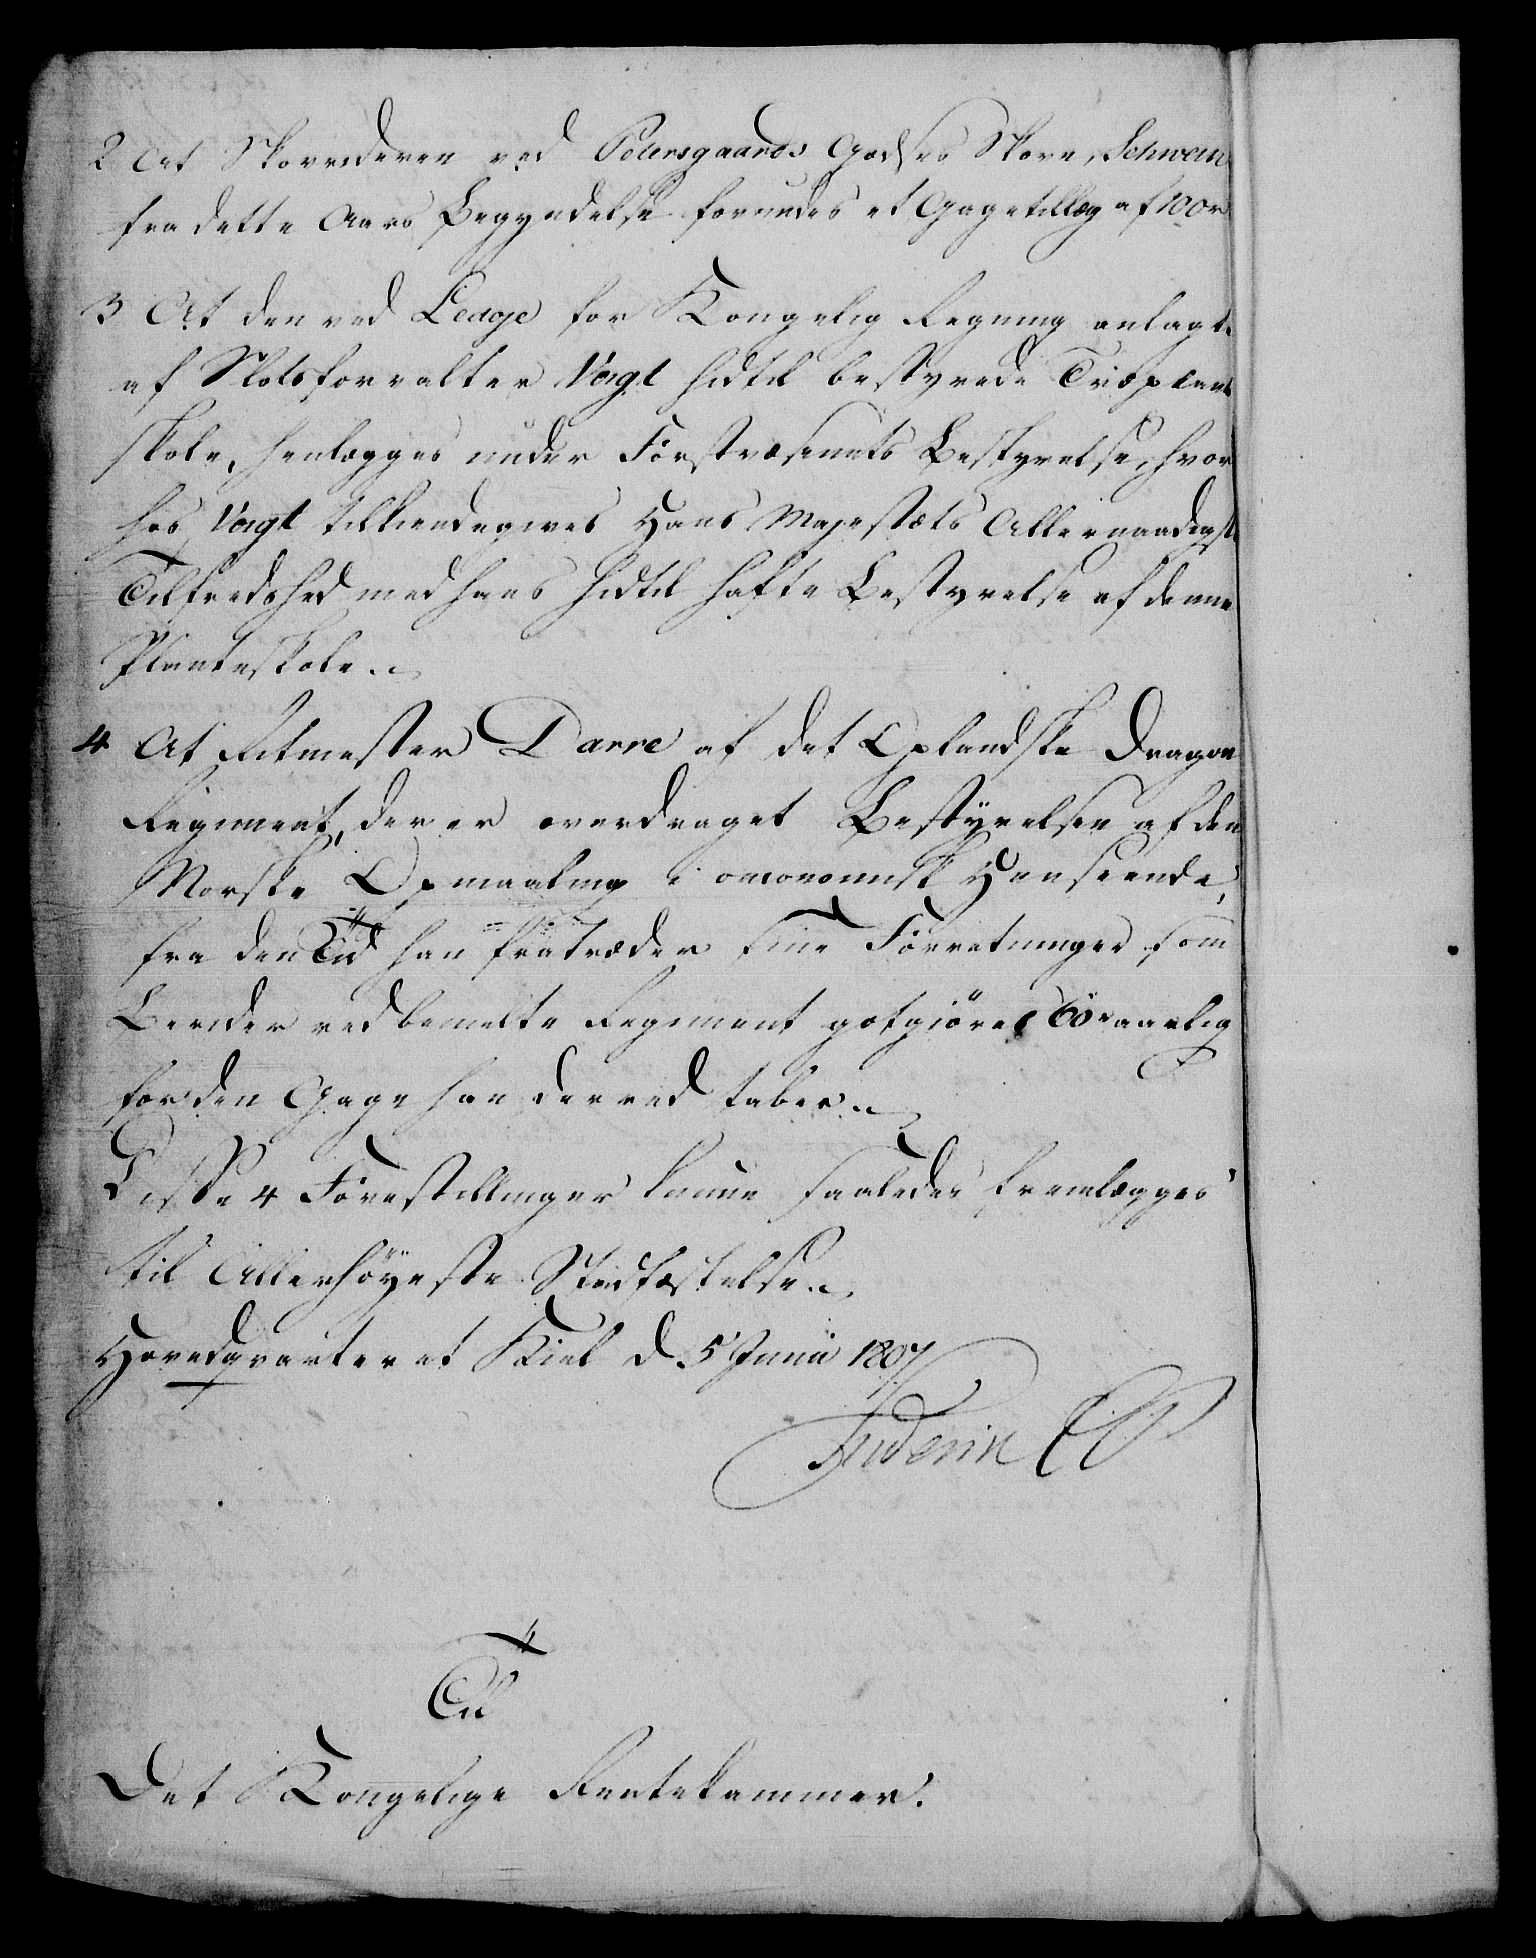 2 At Skovrideren ved Petersgaards Godses Skove, Schwein
fra dette Aars Begyndelse forundes et Gagetillæg af 100 r
3 At den ved Ledøje for Kongelig Regning anlagte
af Slotsforvalter Voigt hidtil bestyrede Træplante
skole, henlægges under Forstvæsenets Bestyrelse, hvor
hos Voigt tilkiendegives Hans Majestæts Allernaadigste
Tilfredshed med hans hidtil hafte Bestyrelse af denne
Planteskole.
4 At Ritmester Darre af det Oplandske Dragon
Regiment, der er overdraget Bestyrelsen af den
Norske Opmaaling i oeconomisk Henseende,
fra den Tid han fratræder sine Forretninger som
Berider ved bemelte Regiment gotgiøres 60 r aarlig
for den Gage han derved taber.
Disse 4 Forestillinger kunne saaledes fremlægges
til Allerhöyeste Stadfæstelse.
Hovedqvarteret Kiel d. 5 Junii 1807
Frederik CP
Til
Det Kongelige Rentekammer.